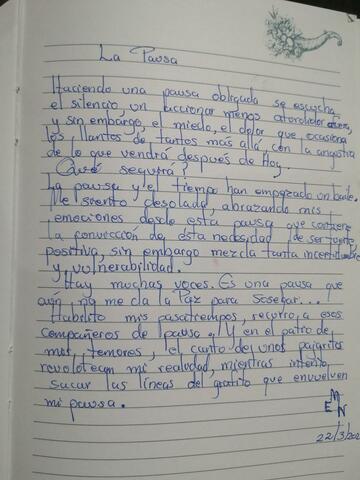 La Pausa
Haciendo una pausa obligada se escucha
el silencio, un accionar menos atorolidor
y sin embargo, el miedo, el dolor que ocasiona
los llantos de tantos más allá, con la angustia
de lo que vendrá después de Hoy.
¿Qué seguirá?
La pausa y el tiempo han empezado un baile.
Me siento desolada, abrazando mis
emociones desde esta pausa que contiene
la convicción de esta necesidad de ser fuerte,
positiva, sin embargo mezcla tanta incertidumbre
y vulnerabilidad.
Hay muchas voces. Es una pausa que
aún no me da la Paz para Sosegar...
Habilito mis pasatiempos, recurro a esos
compañeros de pausa. Y en el patio de
mis temores, el canto de unos pajaritos
revolotean mi realidad, mientras intento
sacar las líneas del grafito que envuelven
mi pausa.
M
E N
22/3/202